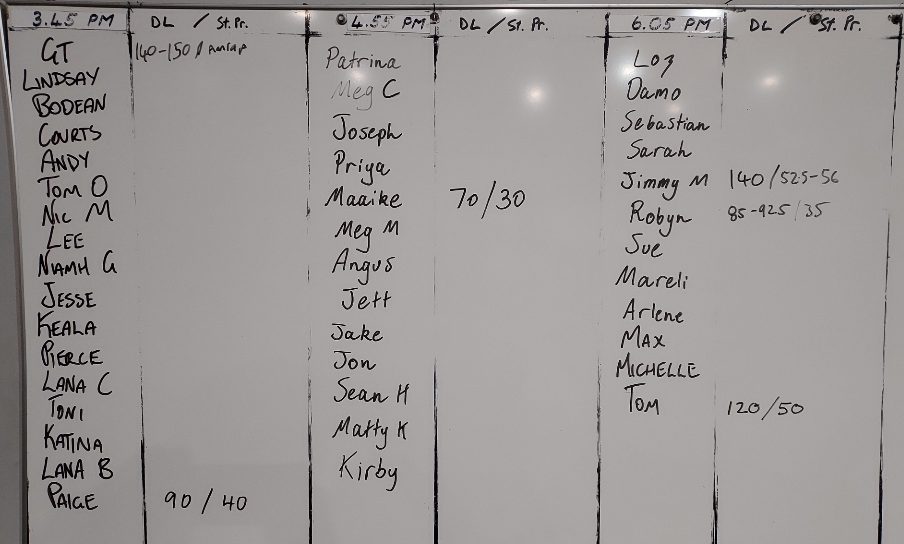 3.45 PM DL / St. Pr.
GT 140-150 /
LINDSAY
BODEAN
COURTS
ANDY
TOM O
NIC M
LEE
NIAMH G
JESSE
KEALA
PIERCE
LANA C
TONI
KATINA
LANA B
PAIGE 90 / 40
4.55 PM DL / St. Pr.
Patrina
Meg C
Joseph
Priya
Maaike 70/30
Meg M
Angus
Jett
Jake
Jon
Sean H
Matty K
Kirby
6.05 PM DL / St. Pr.
Loz
Damo
Sebastian
Sarah
Jimmy M 140/525-56
Robyn 85-925/35
Sue
Mareli
Arlene
MAX
MICHELLE
TOM 120/50